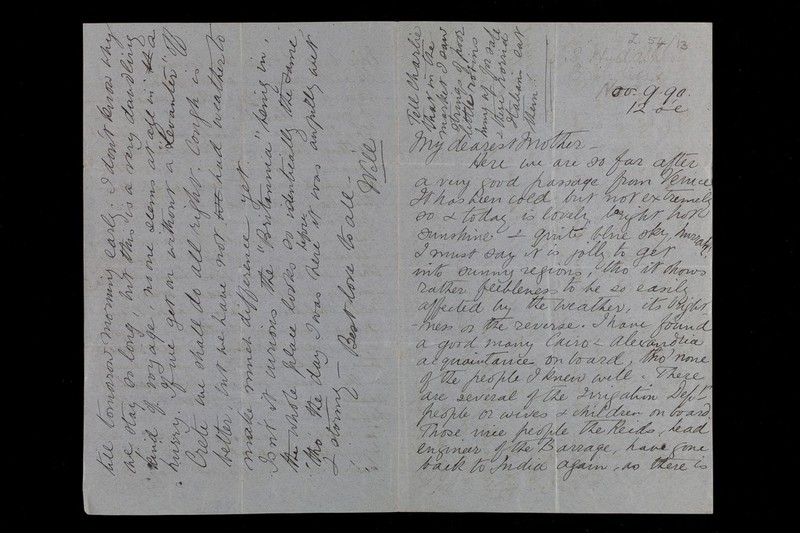 I 54/13
Nov. 9. 90.
My dearest Mother -
Here we are so far after
a very good passage from Venice
It has been cold but not extremely
so & today is lovely bright hot
sunshine & quite blue sky,
I must say it is jolly to get
into sunny regions, tho' it shows
rather feebleness to be so easily
affected by the weather, its bright
-ness or the reverse. I have found
a good many Cairo & Alexandria
acquaintance on board, tho' none
of the people I knew well. There
are several of the Irrigation Dept
people or wives & children on board
Those nice people the Reids, head
engineer of the Barrage, have gone
back to India again, so there is
Tell Charlie
that in the
market I saw
strings of poor
little robins
hung up for sale
& here found
Italians eat
them!
till tomorrow morning early. I don't know why
we stay so long, but this is a very dawdling
kind of voyage, no one seems at all in a
hurry. If we get on without a "Levanter" off
Crete we shall do all right. Cough is
better, but we have not had weather to
make much difference yet.
Isn't it curious the "Britannia" being in,
the whole place looks so identically the same
tho' the day I was here before it was awfully wet
& stormy - Best love to all -
Will